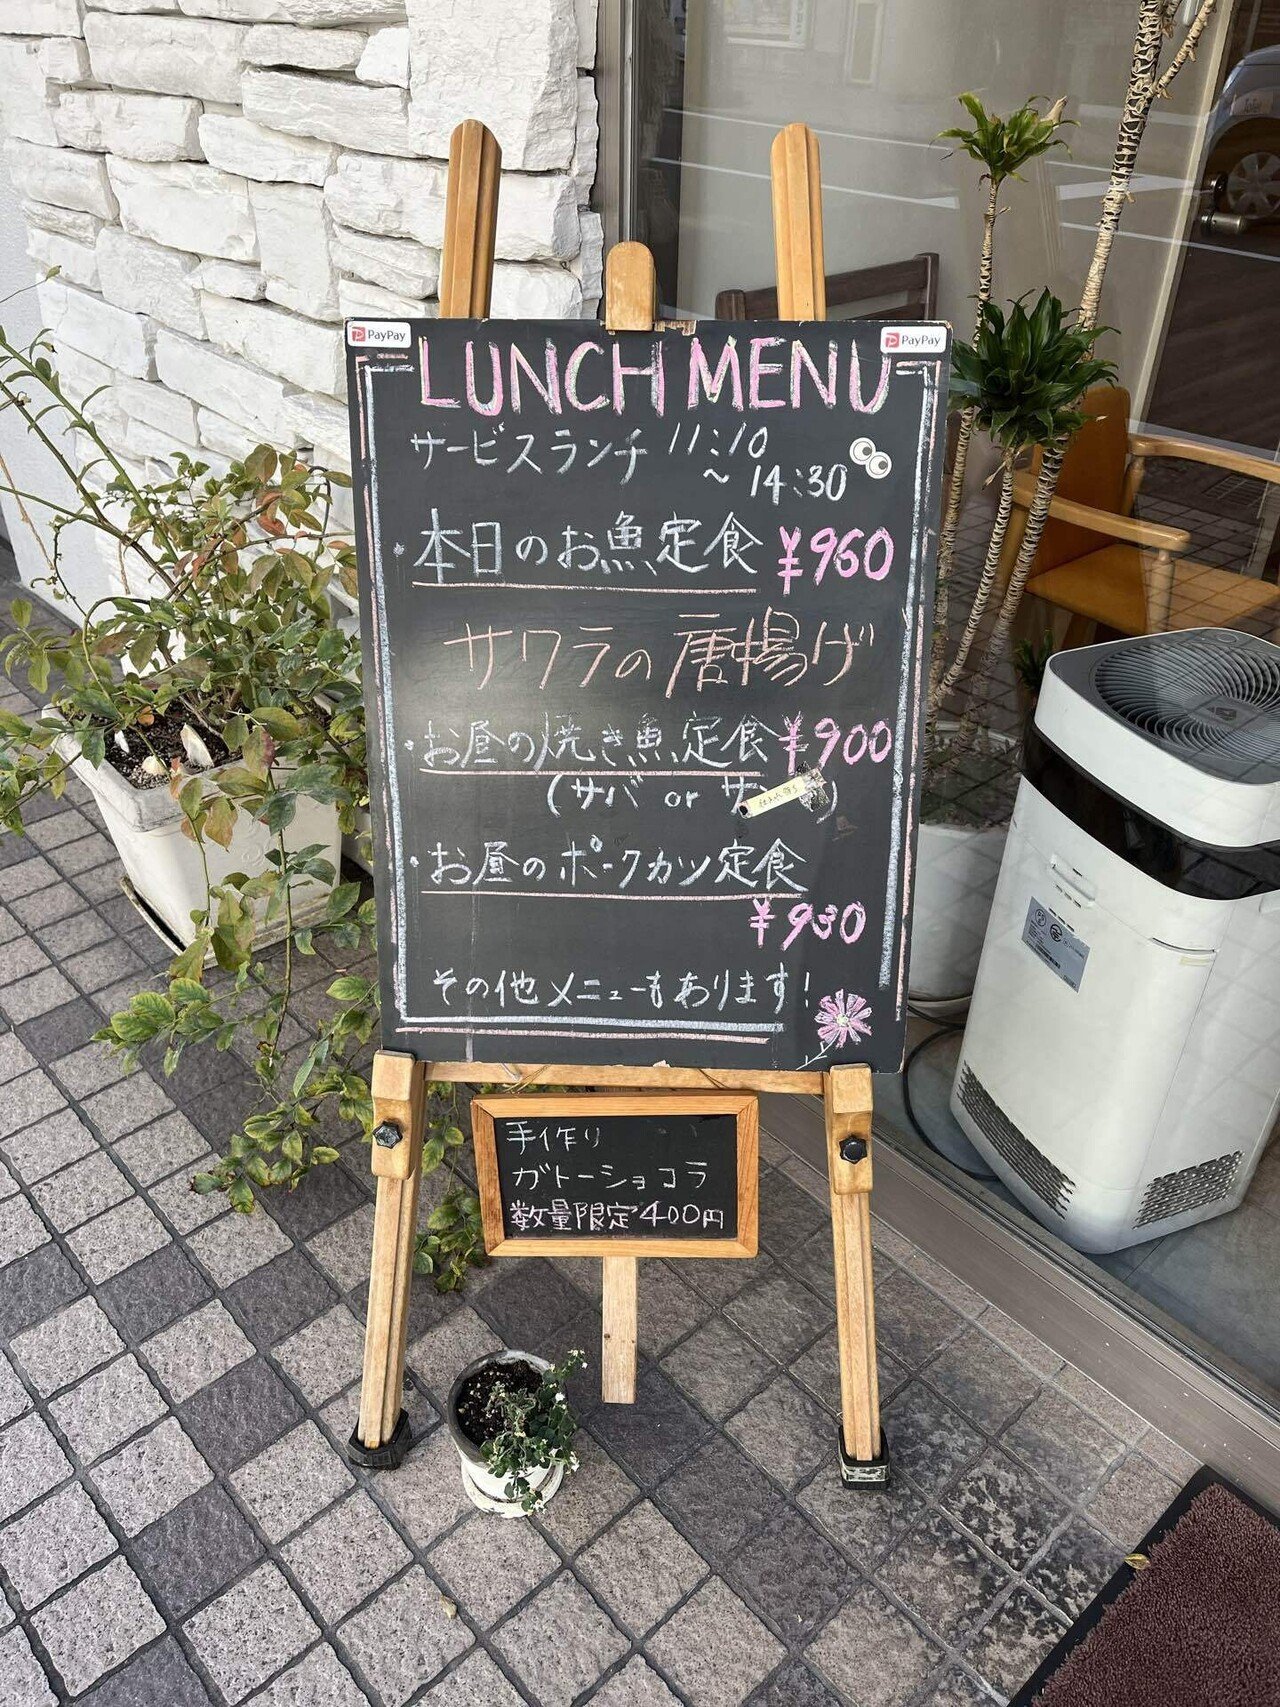 PayPay
PayPay
LUNCH MENU
サービスランチ 11:10
～ 14:30
・本日のお魚定食 ¥960
サワラの唐揚げ
・お昼の焼き魚定食 ¥900
(サバ or サ )
・お昼のポークカツ定食
¥930
その他メニューもあります!
手作り
ガトーショコラ
数量限定400円